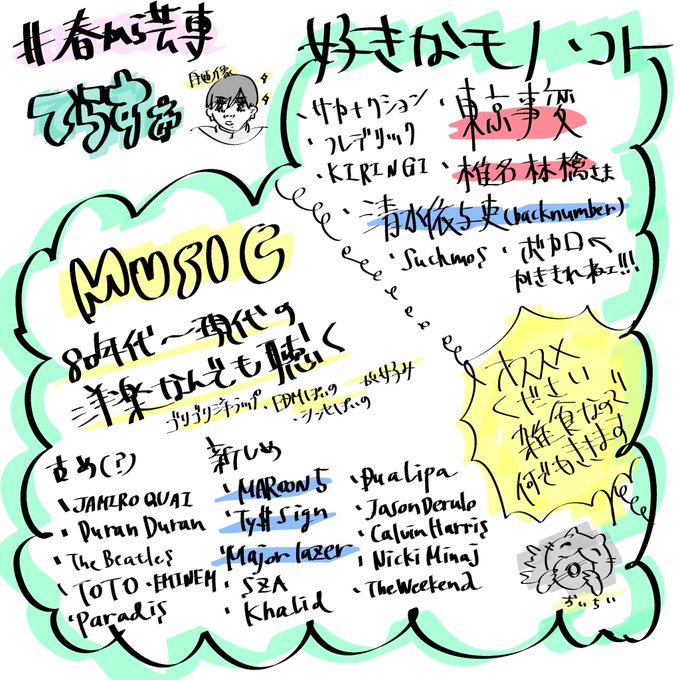 #春から芸専
好きなモノ・コト
自画像
・サカナクション
・フレデリック
・KIRINGI
・東京事変
・椎名林檎さま
・清水依与吏(backnumber)
・Suchmos
・ボカロ
かききれねェ!!!
MUSIC
80年代〜現代の
洋楽なんでも聴く
ゴリゴリ洋ラップ・EDMぽいの
・シンセぽいの
オススメ
ください
雑食なので
何でもききます
古め(?)
・JAMIRO QUAI
・Duran Duran
・The Beatles
・TOTO・EMINEM
・Paradis
新しめ
・MAROON5
・Ty$ sign
・Major lazer
・SZA
・Khalid
・Dualipa
・Jason Derulo
・Calvin Harris
・Nicki Minaj
・The Weekend